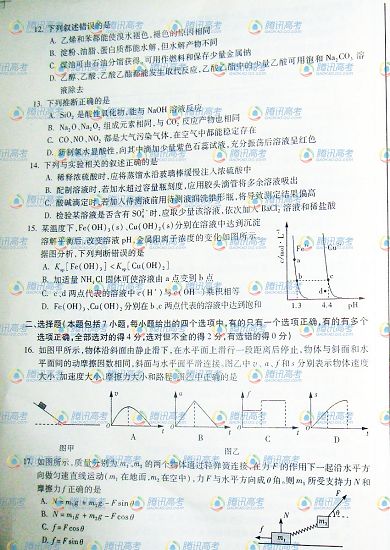 12. 下列叙述错误的是
A. 乙烯和苯都能使溴水褪色,褪色的原因相同
B. 淀粉、油脂、蛋白质都能水解,但水解产物不同
C. 煤油可由石油分馏获得,可用作燃料和保存少量金属钠
D. 乙醇、乙酸、乙酸乙酯都能发生取代反应,乙酸乙酯中的少量乙酸可用饱和Na₂CO₃溶
液除去
13. 下列推断正确的是
A. SiO₂是酸性氧化物,能与NaOH溶液反应
B. Na₂O、Na₂O₂组成元素相同,与CO₂反应产物也相同
C. CO、NO、NO₂都是大气污染气体,在空气中都能稳定存在
D. 新制氯水显酸性,向其中滴加少量紫色石蕊试液,充分振荡后溶液呈红色
14. 下列与实验相关的叙述正确的是
A. 稀释浓硫酸时,应将蒸馏水沿玻璃棒缓慢注入浓硫酸中
B. 配制溶液时,若加水超过容量瓶刻度,应用胶头滴管将多余溶液吸出
C. 酸碱滴定时,若加入待测液前用待测液润洗锥形瓶,将导致测定结果偏高
D. 检验某溶液是否含有SO₄²⁻时,应取少量该溶液,依次加入BaCl₂溶液和稀盐酸
15. 某温度下,Fe(OH)₃(s)、Cu(OH)₂(s)分别在溶液中达到沉淀
溶解平衡后,改变溶液pH,金属阳离子浓度的变化如图所示。
据图分析,下列判断错误的是
A. Ksp[Fe(OH)₃]<Ksp[Cu(OH)₂]
B. 加适量NH₄Cl固体可使溶液由a点变到b点
C. c、d两点代表的溶液中c(H⁺)与c(OH⁻)乘积相等
D. Fe(OH)₃、Cu(OH)₂分别在b、c两点代表的溶液中达到饱和
c/mol·L⁻¹
Fe³⁺ Cu²⁺
b c
a d
1.3 4.4 pH
二、选择题(本题包括7小题,每小题给出的四个选项中,有的只有一个选项正确,有的有多个
选项正确,全部选对的得4分,选对但不全的得2分,有选错的得0分)
16. 如图甲所示,物体沿斜面由静止滑下,在水平面上滑行一段距离后停止,物体与斜面和水
平面间的动摩擦因数相同,斜面与水平面平滑连接。图乙中v、a、f和s分别表示物体速度
大小、加速度大小、摩擦力大小和路程。图乙中正确的是
v a f s
t t t t
A B C D
图甲 图乙
17. 如图所示,质量分别为m₁、m₂的两个物体通过轻弹簧连接,在力F的作用下一起沿水平方
向做匀速直线运动(m₁在地面,m₂在空中),力F与水平方向成θ角。则m₁所受支持力N和
摩擦力f正确的是
A. N=m₁g+m₂g-Fsinθ
B. N=m₁g+m₂g-Fcosθ
C. f=Fcosθ
D. f=Fsinθ
F
θ
m₂
N
f
m₁
腾讯高考